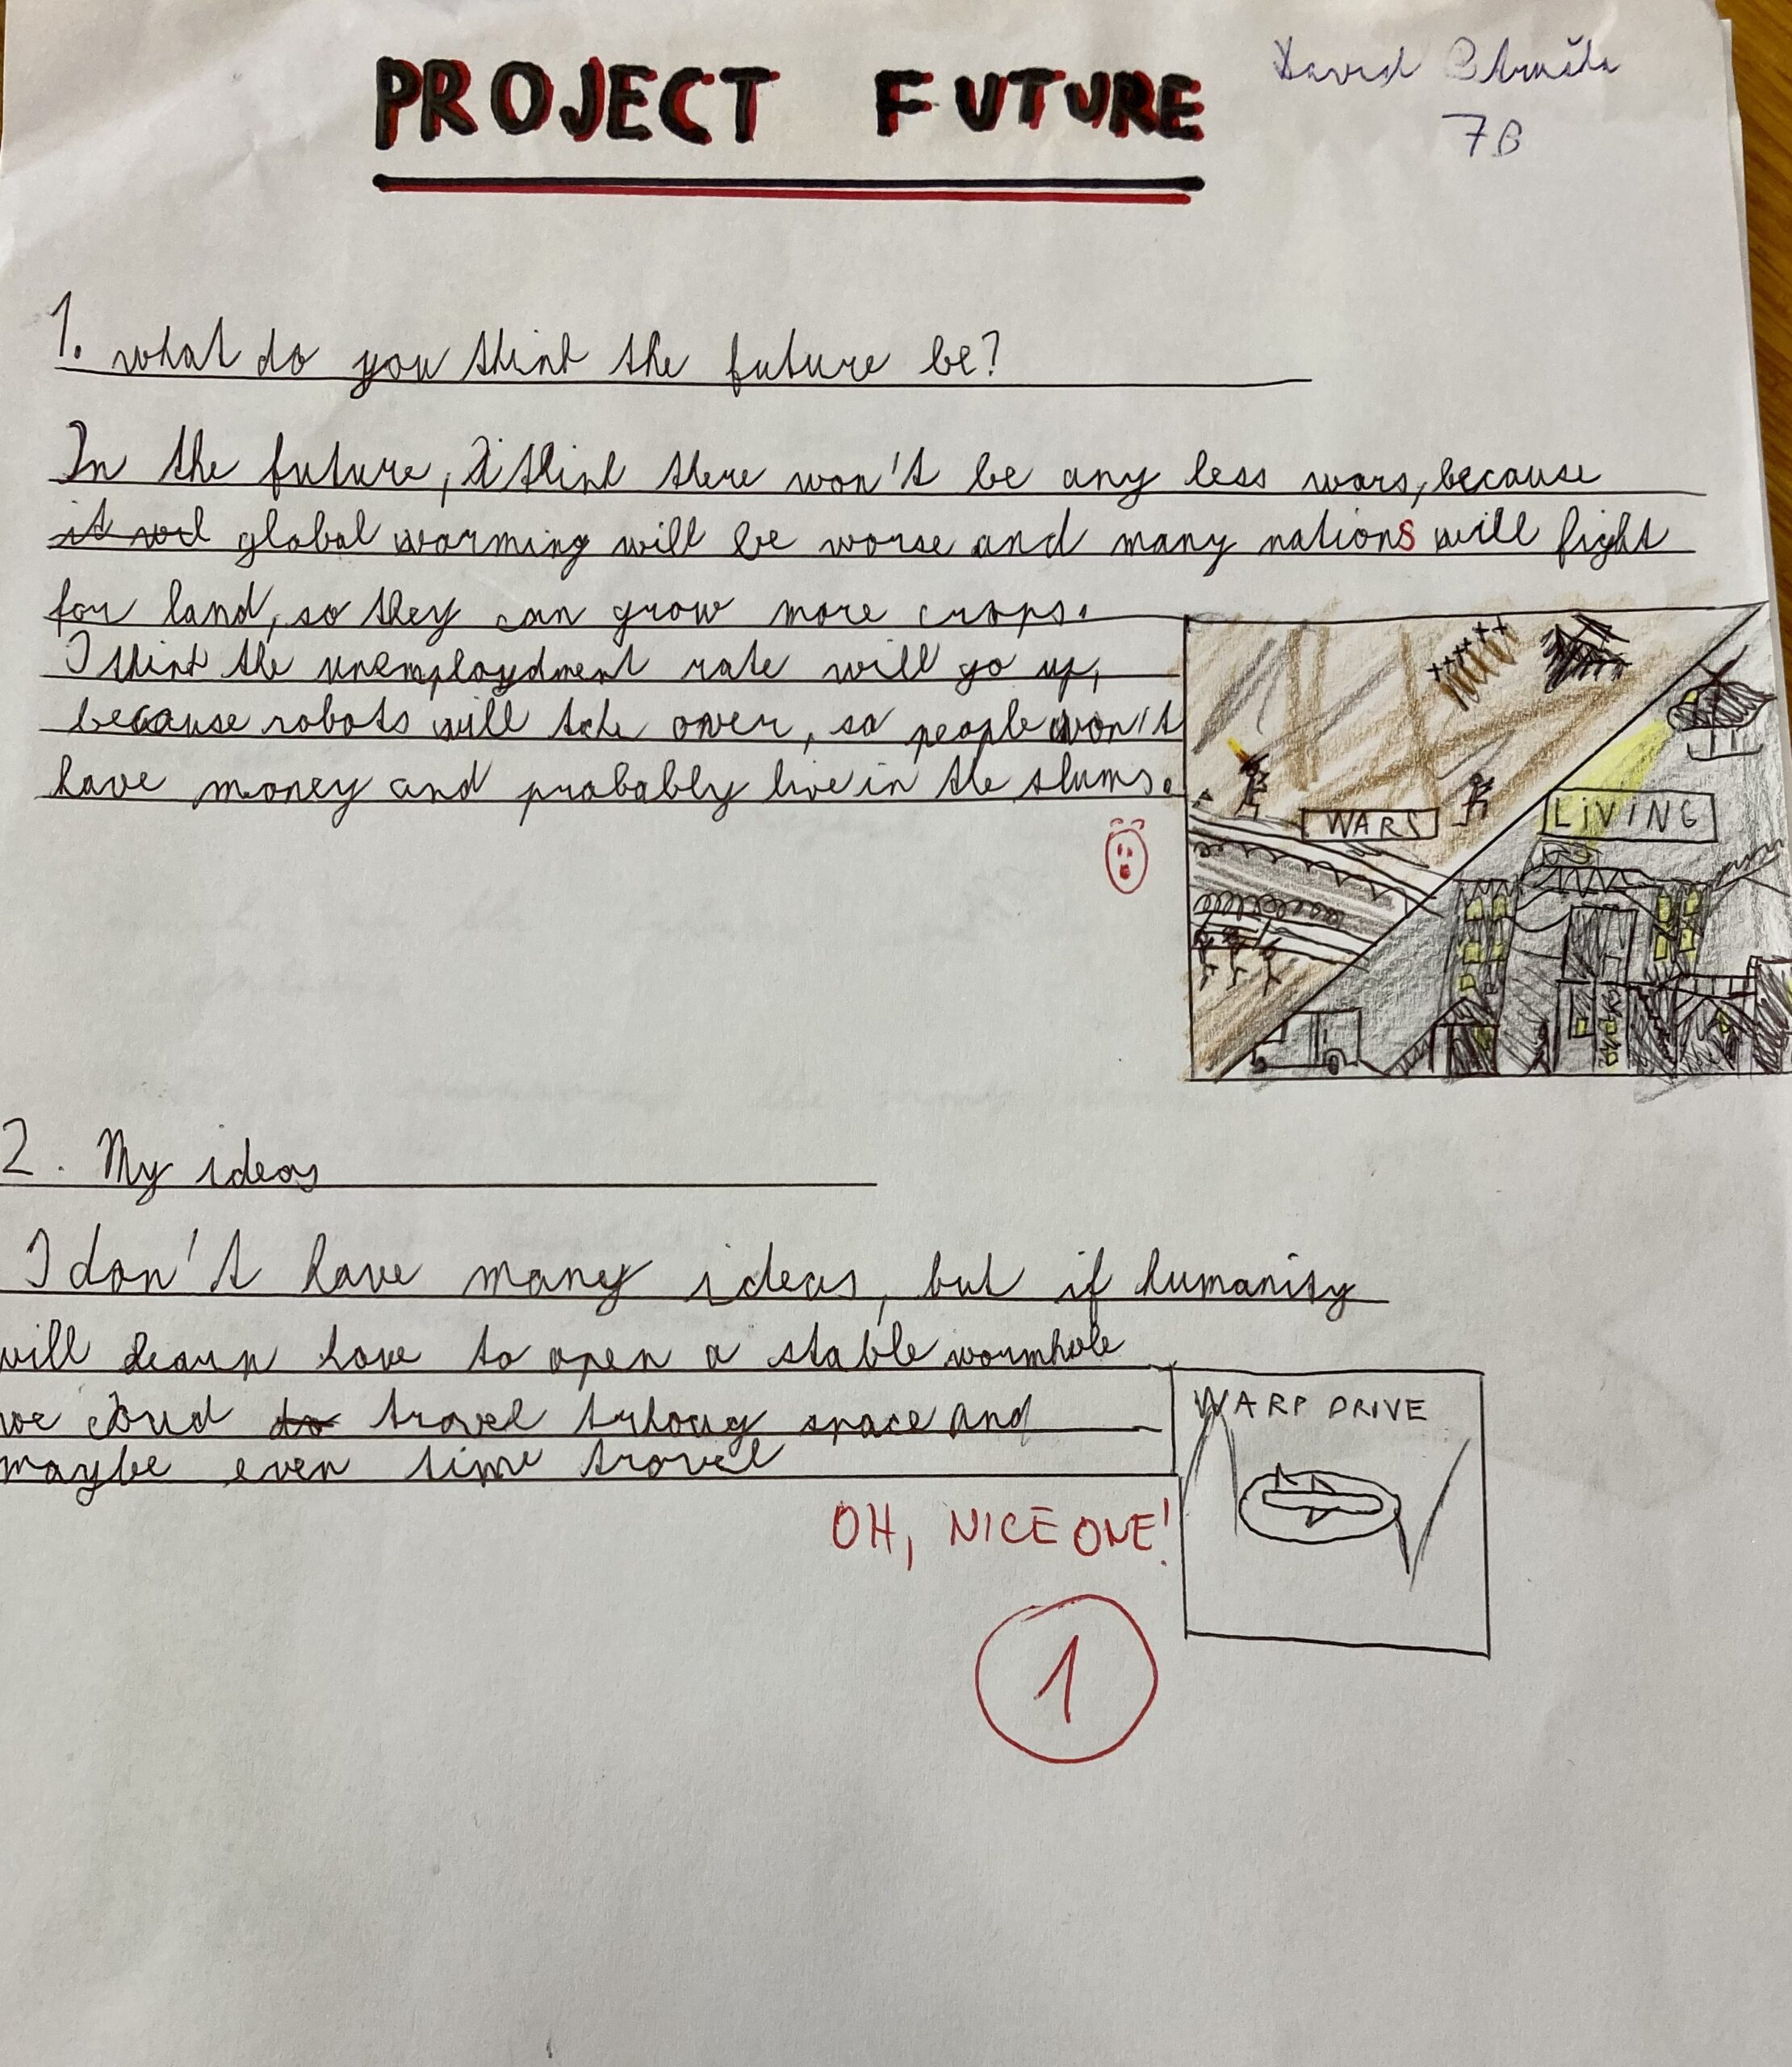 PROJECT FUTURE
David
7B
1. what do you think the future be?
In the future, I think there won't be any less wars, because
global warming will be worse and many nations will fight
for land, so they can grow more crops.
I think the unemploydment rate will go up,
because robots will take over, so people won't
have money and probably live in the slums.
WARS
LiViNG
2. My ideas
I don't have many ideas, but if humanity
will learn how to open a stable wormhole
we coud to travel trhoug space and
maybe even time travel
WARP DRIVE
OH, NICE ONE!
1